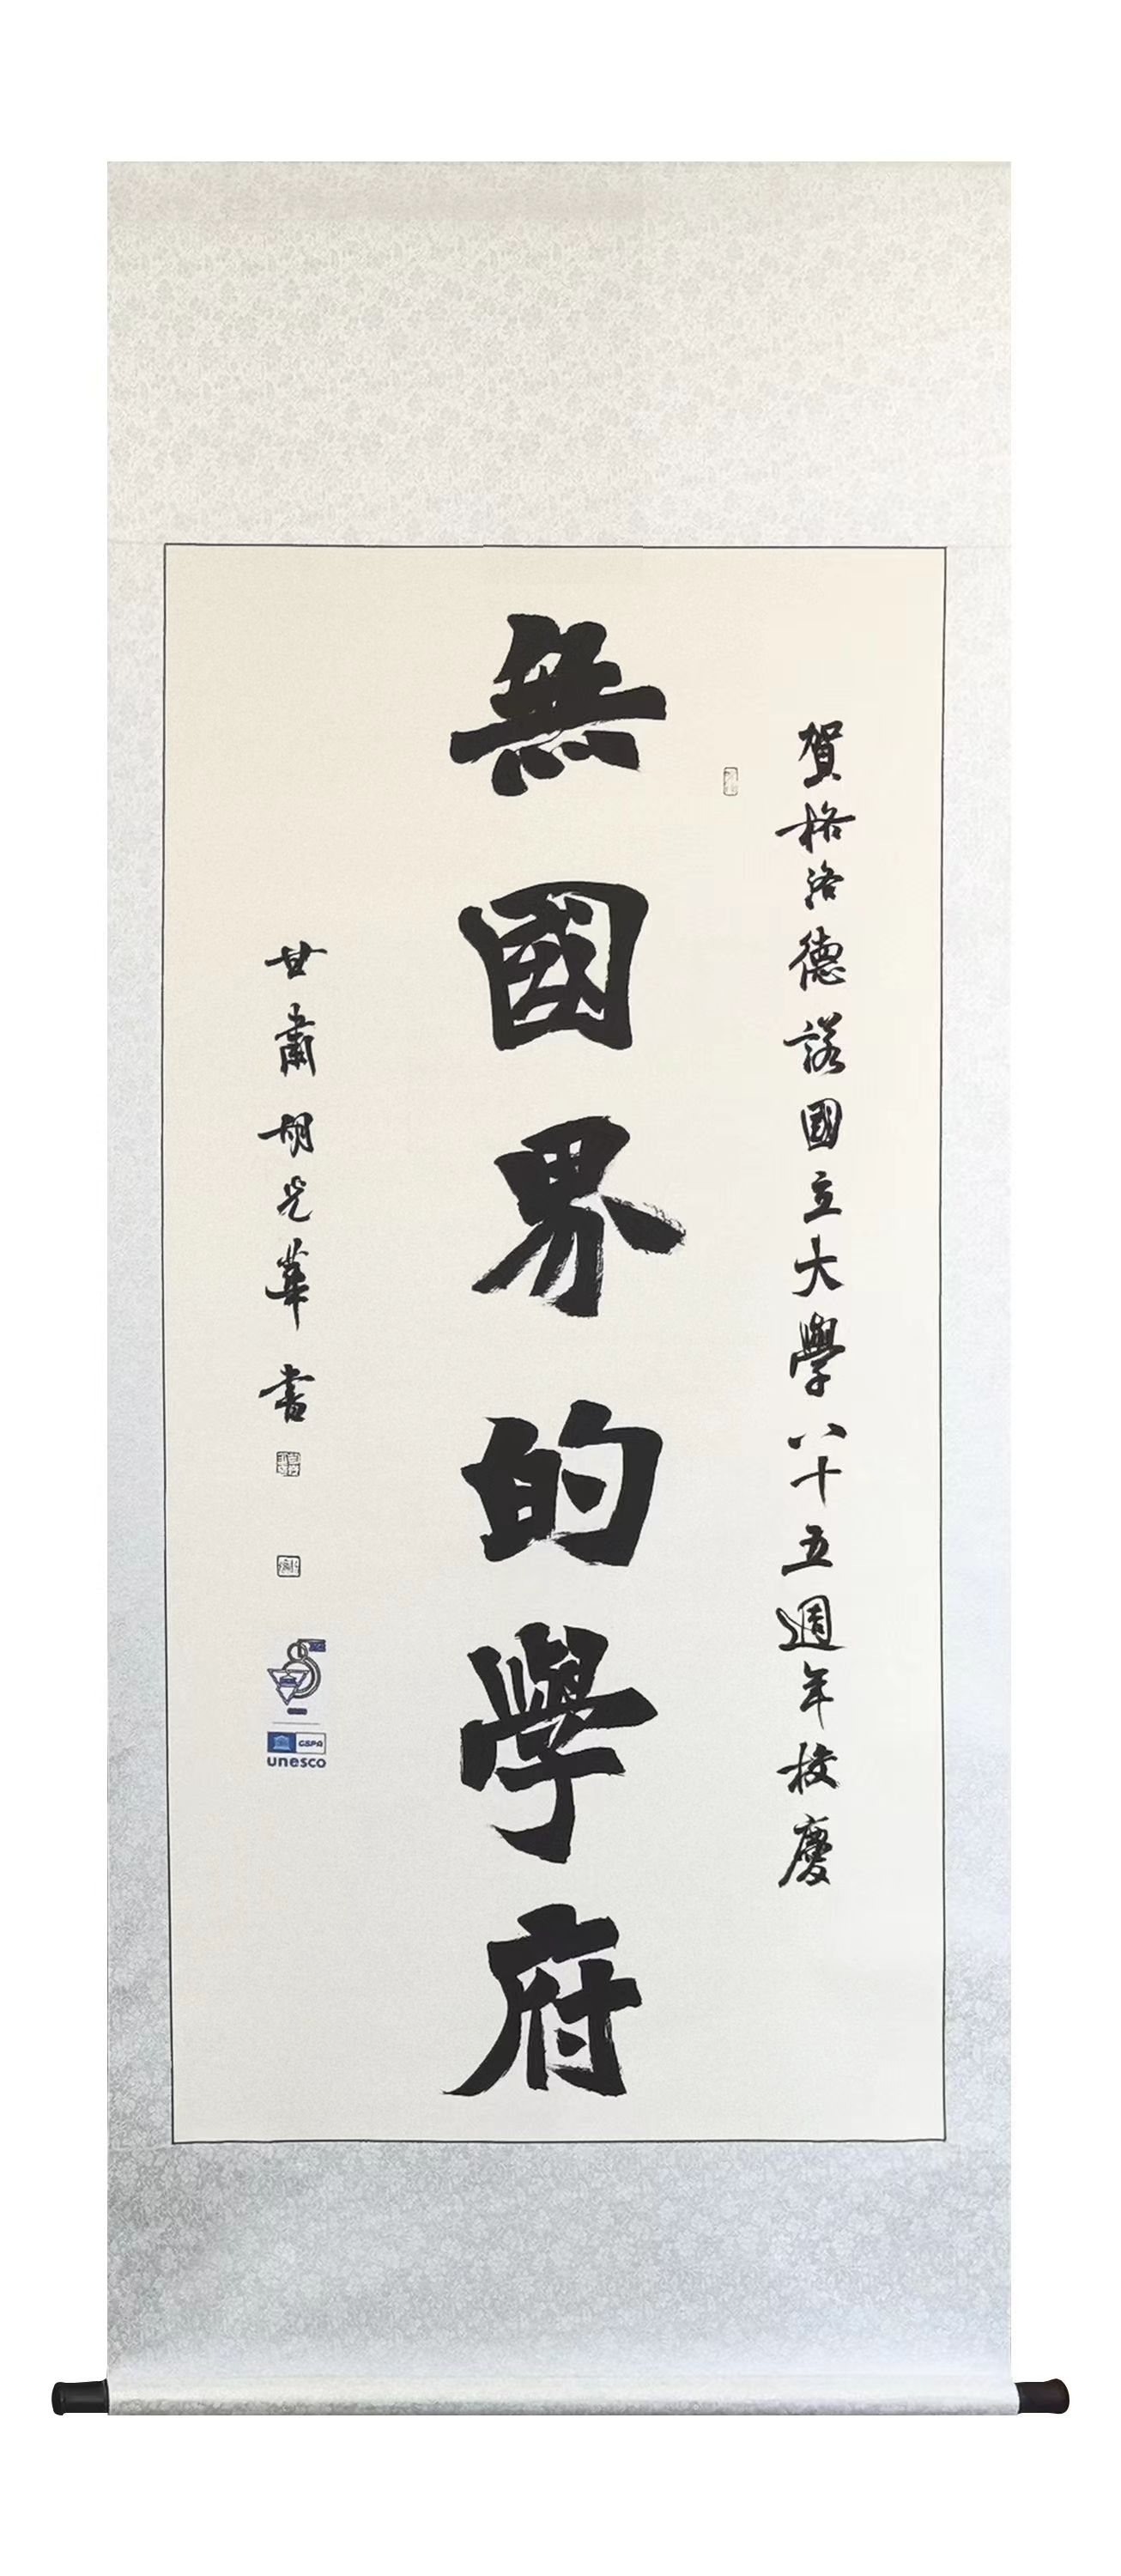 賀格洛德諾國立大學八十五週年校慶
無國界的學府
甘肅胡光華書
GSPA
unesco